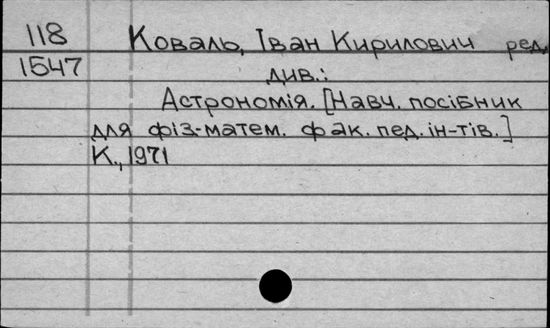 118 Коваль, Іван Кирилович ред.
1547 див.:
Астрономія. [Навч. посібник
для фіз-матем. фак. пед. ін-тів.]
К., 1971